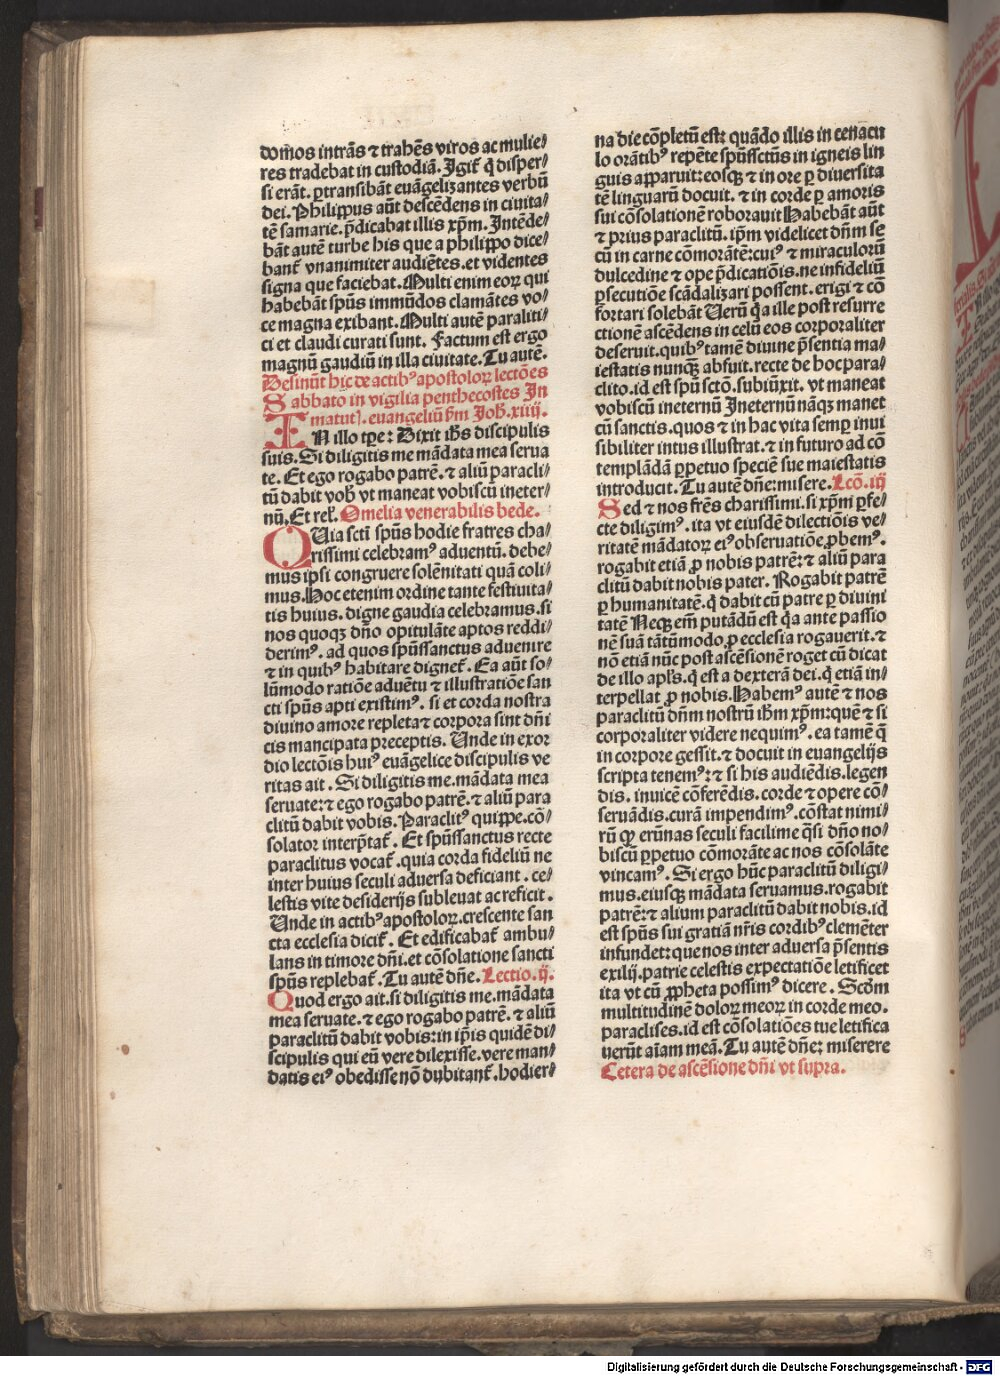 domos intrās ⁊ trahēs viros ac mulie⸗
res tradebat in custodiā. Igit᷑ q̇ disper⸗
si erāt. ꝑtransibāt euāgelizantes verbū
dei. Philippus aūt descēdens in ciuita⸗
tē samarie. p̄dicabat illis xp̄m. Intēde⸗
bāt autē turbe his que a philippo dice⸗
bant᷑ vnanimiter audiētes. et videntes
signa que faciebat. Multi enim eoꝝ qui
habebāt sp̄us immūdos clamātes vo⸗
ce magna exibant. Multi autē paraliti⸗
ci et claudi curati sunt. Factum est ergo
magnū gaudiū in illa ciuitate. Tu autē.
Desinūt hic de actibꝰ apostoloꝝ lectōes
Sabbato in vigilia penthecostes In
matut̄. euangeliū s̄m Joh̄. xiiij.
IN illo tꝑe: Dixit ih̄s discipulis
suis. Si diligitis me mādata mea serua
te. Et ego rogabo patrē. ⁊ aliū paracli⸗
tū dabit vob̄ vt maneat vobiscū ineter⸗
nū. Et rel̄. Omelia venerabilis bede.
QUia scti sp̄us hodie fratres cha⸗
rissimi celebramꝰ aduentū. debe⸗
mus ipsi congruere solēnitati quā coli⸗
mus. Hoc etenim ordine tante festiuita⸗
tis huius. digne gaudia celebramus. si
nos quoqꝫ dn̄o opitulāte aptos reddi⸗
derimꝰ. ad quos sp̄ussanctus aduenire
⁊ in quibꝰ habitare dignet᷑. Ea aūt so⸗
lūmodo ratiōe aduētu ⁊ illustratiōe san
cti sp̄us apti existimꝰ. si et corda nostra
diuino amore repleta ⁊ corpora sint dn̄i
cis mancipata preceptis. Unde in exor
dio lectōis huiꝰ euāgelice discipulis ve
ritas ait. Si diligitis me. mādata mea
seruate: ⁊ ego rogabo patrē. ⁊ aliū para
clitū dabit vobis. Paraclitꝰ quippe. cō⸗
solator interp̄tat᷑. Et sp̄ussanctus recte
paraclitus vocat᷑. quia corda fideliū ne
inter huius seculi aduersa deficiant. ce⸗
lestis vite desiderijs subleuat ac reficit.
Unde in actibꝰ apostoloꝝ. crescente san
cta ecclesia dicit᷑. Et edificabat᷑ ambu⸗
lans in timore dn̄i. et cōsolatione sancti
sp̄us replebat᷑. Tu autē dn̄e. Lectio. ij.
Quod ergo ait. si diligitis me. mādata
mea seruate. ⁊ ego rogabo patrē. ⁊ aliū
paraclitū dabit vobis: in ip̄is quidē di⸗
scipulis qui eū vere dilexisse. vere man⸗
datis eiꝰ obedisse nō dubitant᷑. hodier⸗
na die cōpletū est: quādo illis in cenacu
lo orātibꝰ repēte sp̄ussctūs in igneis lin
guis apparuit: eosqꝫ ⁊ in ore ꝑ diuersita
tē linguarū docuit. ⁊ in corde ꝑ amoris
sui cōsolationē roborauit Habebāt aūt
⁊ prius paraclitū. ip̄m videlicet dn̄m se
cū in carne cōmorātē: cuiꝰ ⁊ miraculorū
dulcedine ⁊ ope p̄dicatiōis. ne infideliū
ꝑsecutiōe scādalizari possent. erigi ⁊ cō
fortari solebāt Uerū q̇a ille post resurre
ctionē ascēdens in celū eos corporaliter
deseruit. quibꝰ tamē diuine p̄sentia ma⸗
iestatis nunqꝫ abfuit. recte de hoc para⸗
clito. id est sp̄u sctō. subiūxit. vt maneat
vobiscū ineternū Ineternū nāqꝫ manet
cū sanctis. quos ⁊ in hac vita semꝑ inui
sibiliter intus illustrat. ⁊ in futuro ad cō
templādā ꝑpetuo speciē sue maiestatis
introducit. Tu autē dn̄e: misere. Lcō. iij
Sed ⁊ nos frēs charissimi. si xp̄m ꝑfe⸗
cte diligimꝰ. ita vt eiusdē dilectiōis ve⸗
ritatē mādatoꝝ eiꝰ obseruatiōe ꝓbemꝰ.
rogabit etiā ꝓ nobis patrē: ⁊ aliū para
clitū dabit nobis pater. Rogabit patrē
ꝑ humanitatē. q̇ dabit cū patre ꝑ diuini
tatē Neqꝫ em̄ putādū est q̇a ante passio
nē suā tātūmodo ꝓ ecclesia rogauerit. ⁊
nō etiā nūc post ascēsionē roget cū dicat
de illo apl̄s. q̇ est a dexterā dei. q̇ etiā in⸗
terpellat ꝓ nobis. Habemꝰ autē ⁊ nos
paraclitū dn̄m nostrū ih̄m xp̄m: quē ⁊ si
corporaliter videre nequimꝰ. ea tamē q̄
in corpore gessit. ⁊ docuit in euangelijs
scripta tenemꝰ: ⁊ si his audiēdis. legen
dis. inuicē cōferēdis. corde ⁊ opere cō⸗
seruādis. curā impendimꝰ. cōstat nimi⸗
rū ꝙ erūnas seculi facilime q̄si dn̄o no⸗
biscū ꝑpetuo cōmorāte ac nos cōsolāte
vincamꝰ. Si ergo hūc paraclitū diligi⸗
mus. eiusqꝫ mādata seruamus. rogabit
patrē: ⁊ alium paraclitū dabit nobis. id
est sp̄us sui gratiā nr̄is cordibꝰ clemēter
infundet: que nos inter aduersa p̄sentis
exilij. patrie celestis expectatiōe letificet
ita vt cū ꝓpheta possimꝰ dicere. Scd̄m
multitudinē doloꝝ meoꝝ in corde meo.
paraclises. id est cōsolatiōes tue letifica
uerūt aīam meā. Tu autē dn̄e: miserere
Cetera de ascēsione dn̄i vt supra.
Digitalisierung gefördert durch die Deutsche Forschungsgemeinschaft - DFG